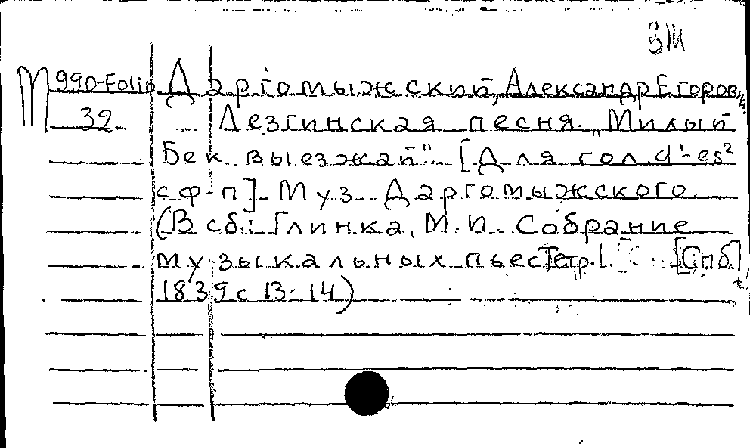 ВМ
М 990-Folio Даргомыжский, Александр Егоров.
32 Лезгинская песня. "Милый
Бек выезжай" [Для гол d'-es²
с ф-п] Муз Даргомыжского
(В сб: Глинка, М.И. Собрание
музыкальных пьес Тетр. I. [Спб]
1839 с 13-14)